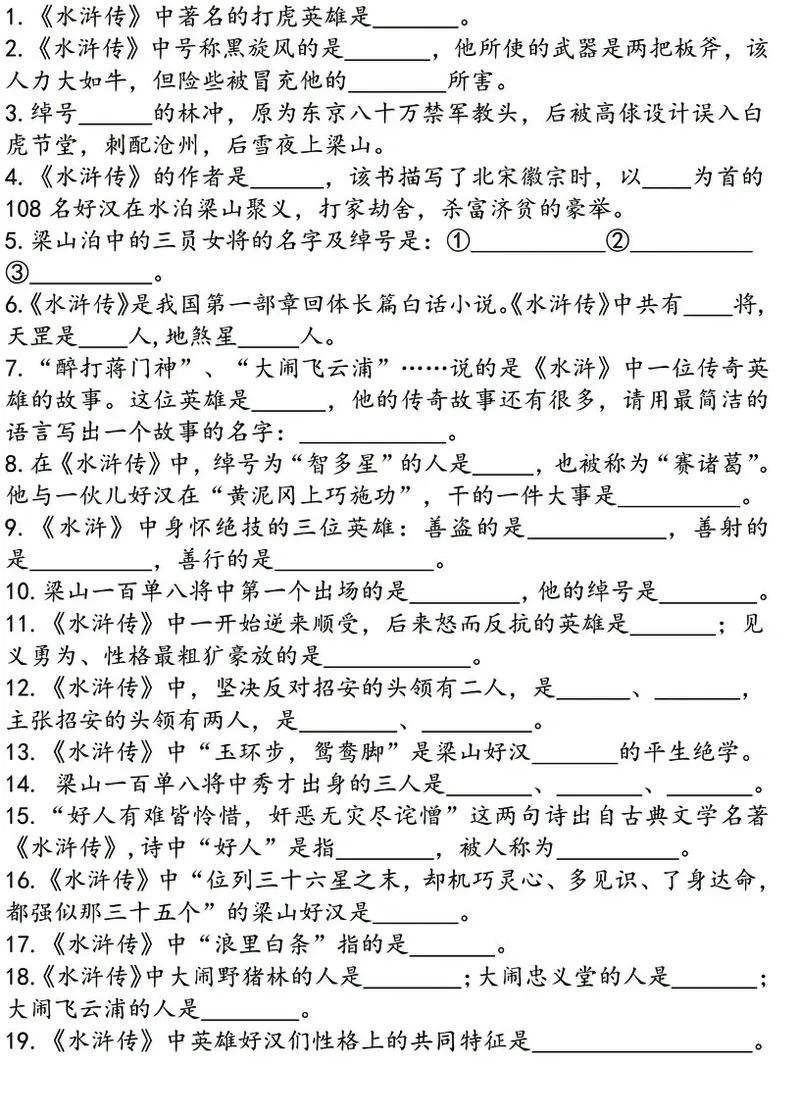 1.《水浒传》中著名的打虎英雄是_______。
2.《水浒传》中号称黑旋风的是_______，他所使的武器是两把板斧，该
人力大如牛，但险些被冒充他的________所害。
3.绰号______的林冲，原为东京八十万禁军教头，后被高俅设计误入白
虎节堂，刺配沧州，后雪夜上梁山。
4.《水浒传》的作者是______，该书描写了北宋徽宗时，以____为首的
108 名好汉在水泊梁山聚义，打家劫舍，杀富济贫的豪举。
5.梁山泊中的三员女将的名字及绰号是：①___________②__________
③__________。
6.《水浒传》是我国第一部章回体长篇白话小说。《水浒传》中共有____将,
天罡是____人,地煞星_____人。
7.“醉打蒋门神”、“大闹飞云浦”……说的是《水浒》中一位传奇英
雄的故事。这位英雄是______，他的传奇故事还有很多，请用最简洁的
语言写出一个故事的名字：____________。
8.在《水浒传》中，绰号为“智多星”的人是_____，也被称为“赛诸葛”。
他与一伙儿好汉在“黄泥冈上巧施功”，干的一件大事是__________。
9.《水浒》中身怀绝技的三位英雄：善盗的是___________，善射的
是__________，善行的是_____________。
10.梁山一百单八将中第一个出场的是_________,他的绰号是________。
11.《水浒传》中一开始逆来顺受，后来怒而反抗的英雄是_______；见
义勇为、性格最粗犷豪放的是____________。
12.《水浒传》中，坚决反对招安的头领有二人，是______、_______，
主张招安的头领有两人，是________、_________。
13.《水浒传》中“玉环步，鸳鸯脚”是梁山好汉_______的平生绝学。
14. 梁山一百单八将中秀才出身的三人是_______、_______、_______。
15.“好人有难皆怜惜，奸恶无灾尽诧憎”这两句诗出自古典文学名著
《水浒传》,诗中“好人”是指________，被人称为__________。
16.《水浒传》中“位列三十六星之末，却机巧灵心、多见识、了身达命，
都强似那三十五个”的梁山好汉是_______。
17.《水浒传》中“浪里白条”指的是_______。
18.《水浒传》中大闹野猪林的人是________；大闹忠义堂的人是_______；
大闹飞云浦的人是________。
19.《水浒传》中英雄好汉们性格上的共同特征是__________________。